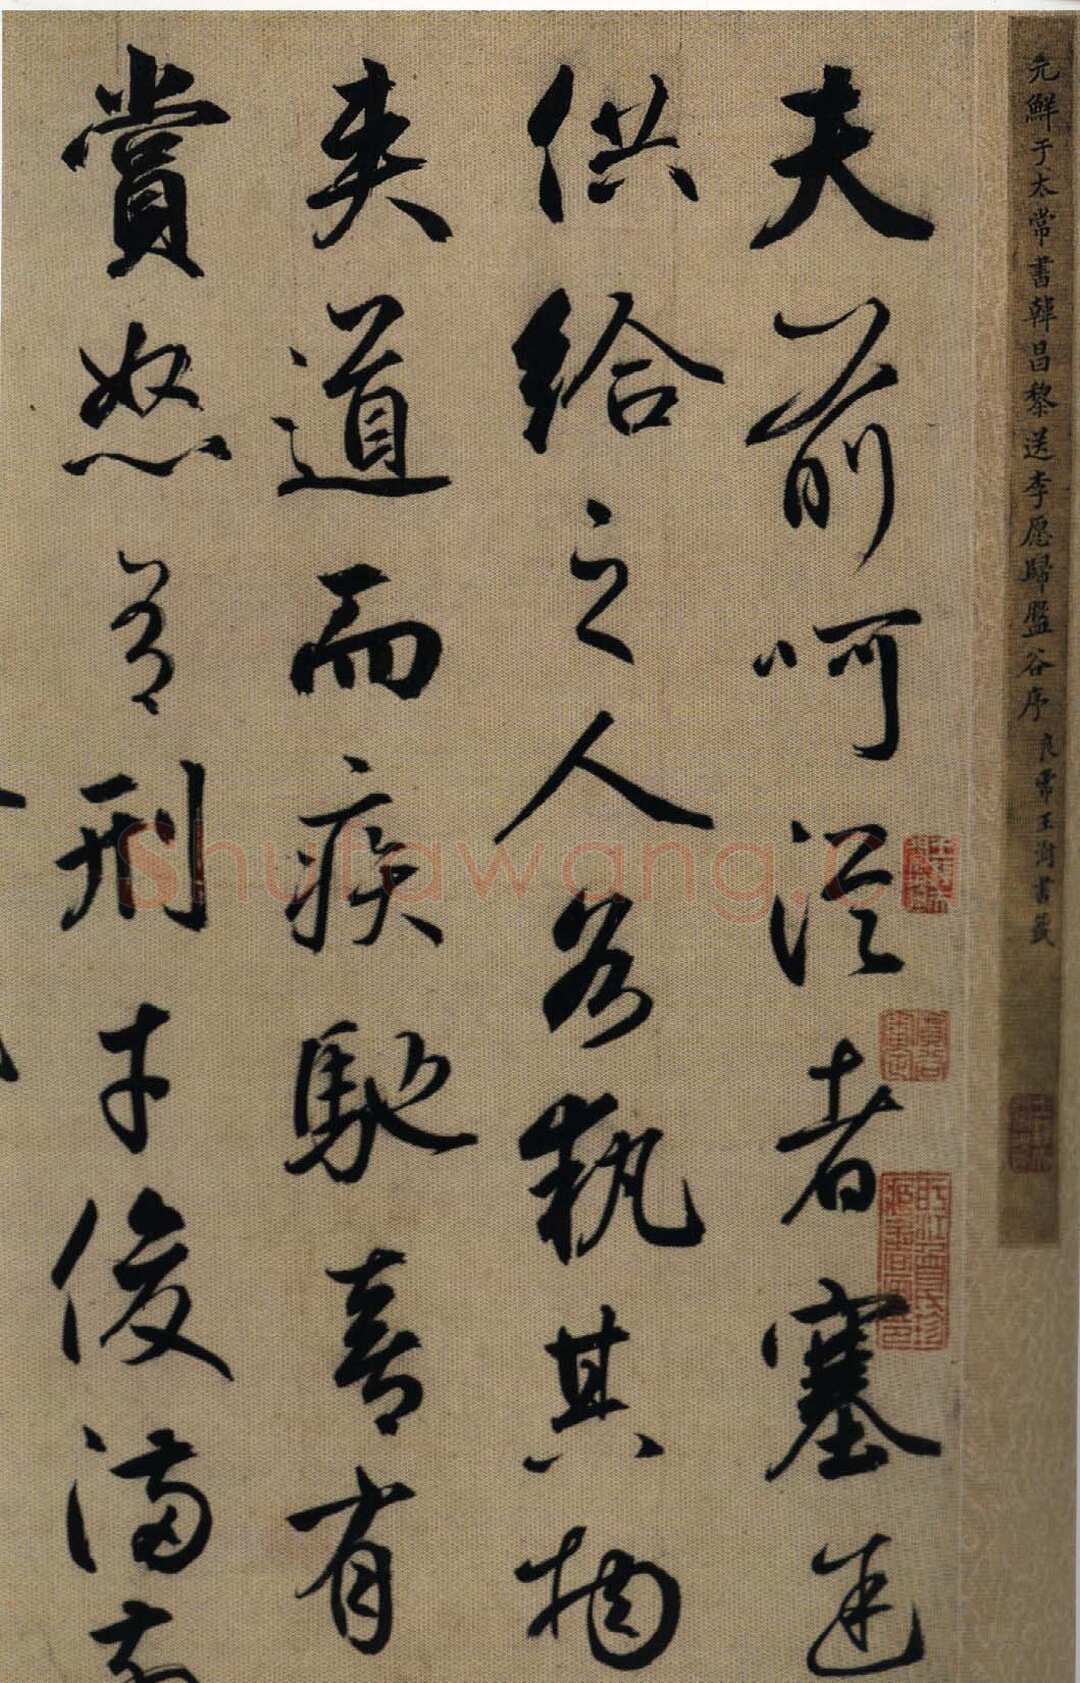 元鮮于太常書韓昌黎送李愿歸盤谷序 良常王澍書籤
夫前呵從者塞途
供給之人各執其物
夾道而疾馳喜有
賞怒有刑才俊滿前
shufawang.c